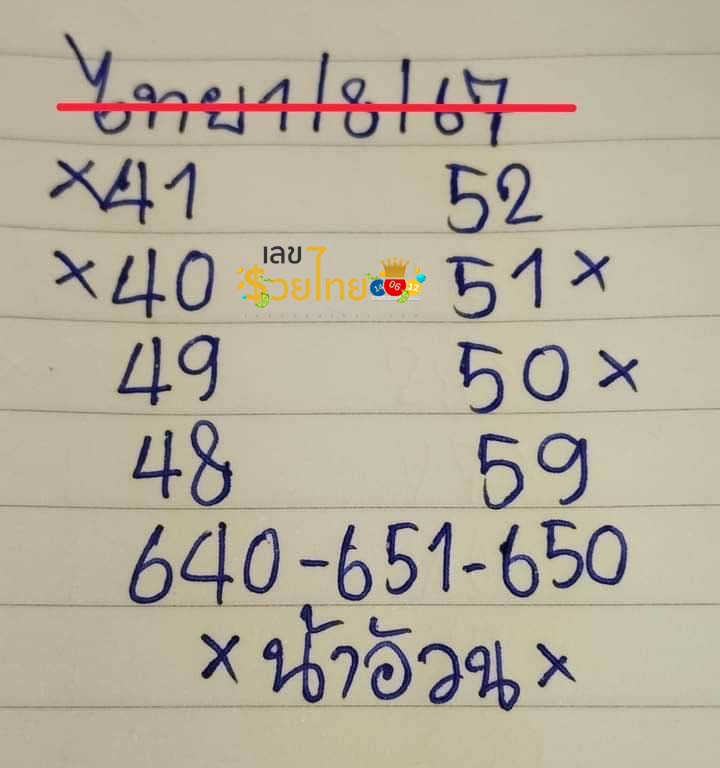 ไทย 1/8/67
×41 52
×40 51×
เลข
รวยไทย 14 06 12
49 50×
48 59
640-651-650
×น้าอ้วน×